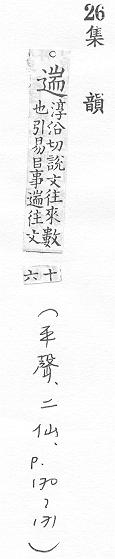 26
集韻
。遄
淳沿切說文往來數
也引易㠯事遄往文
十六
(平聲、二仙、p.170~171)